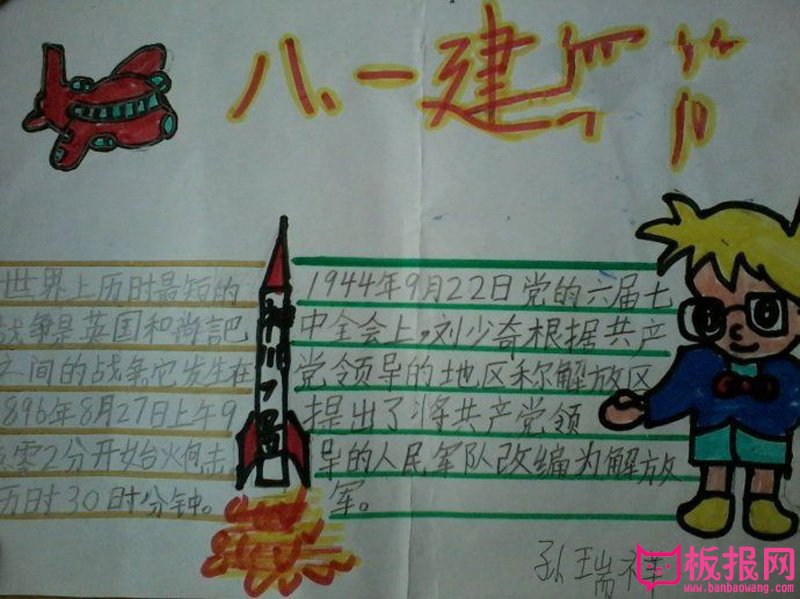 八、一建军节
世界上历时最短的
战争是英国和尚記巴
之间的战争它发生在
896年8月27日上午9
点零2分开始火何击
历时30时分钟。
神州7号
1944年9月22日党的六届七
中全会上,刘少奇根据共产
党领导的地区称解放区
提出了将共产党领
导的人民军队改编为解放
军。
孙瑞祥
板报网
www.banbaowang.com